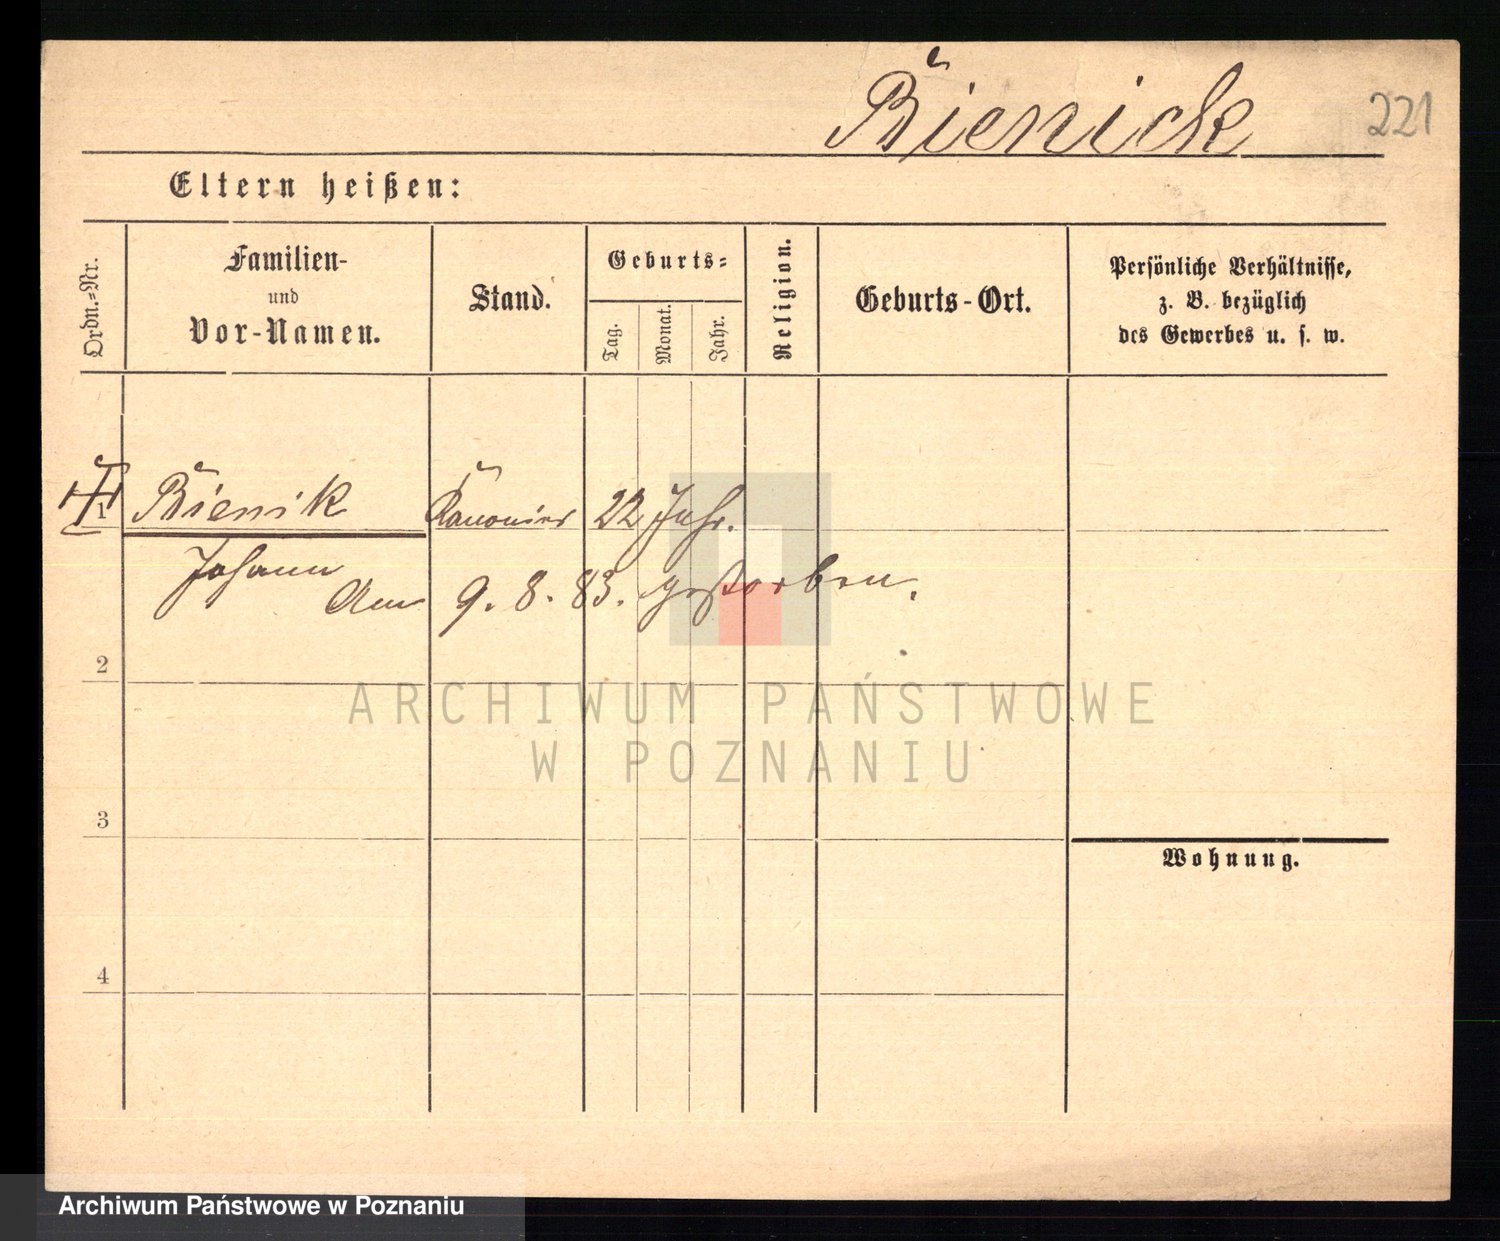 Bienick 221
Eltern heißen:
Ordn.=Nr.
Familien-
und
Vor-Namen.
Stand.
Geburts=
Tag.
Monat.
Jahr.
Religion.
Geburts-Ort.
Persönliche Verhältnisse,
z. B. bezüglich
des Gewerbes u. s. w.
1 Bienik Kanonier 22 Jahr.
Johann
Am 9. 8. 83. gestorben.
2
ARCHIWUM PAŃSTWOWE
W POZNANIU
3
Wohnung.
4
Archiwum Państwowe w Poznaniu